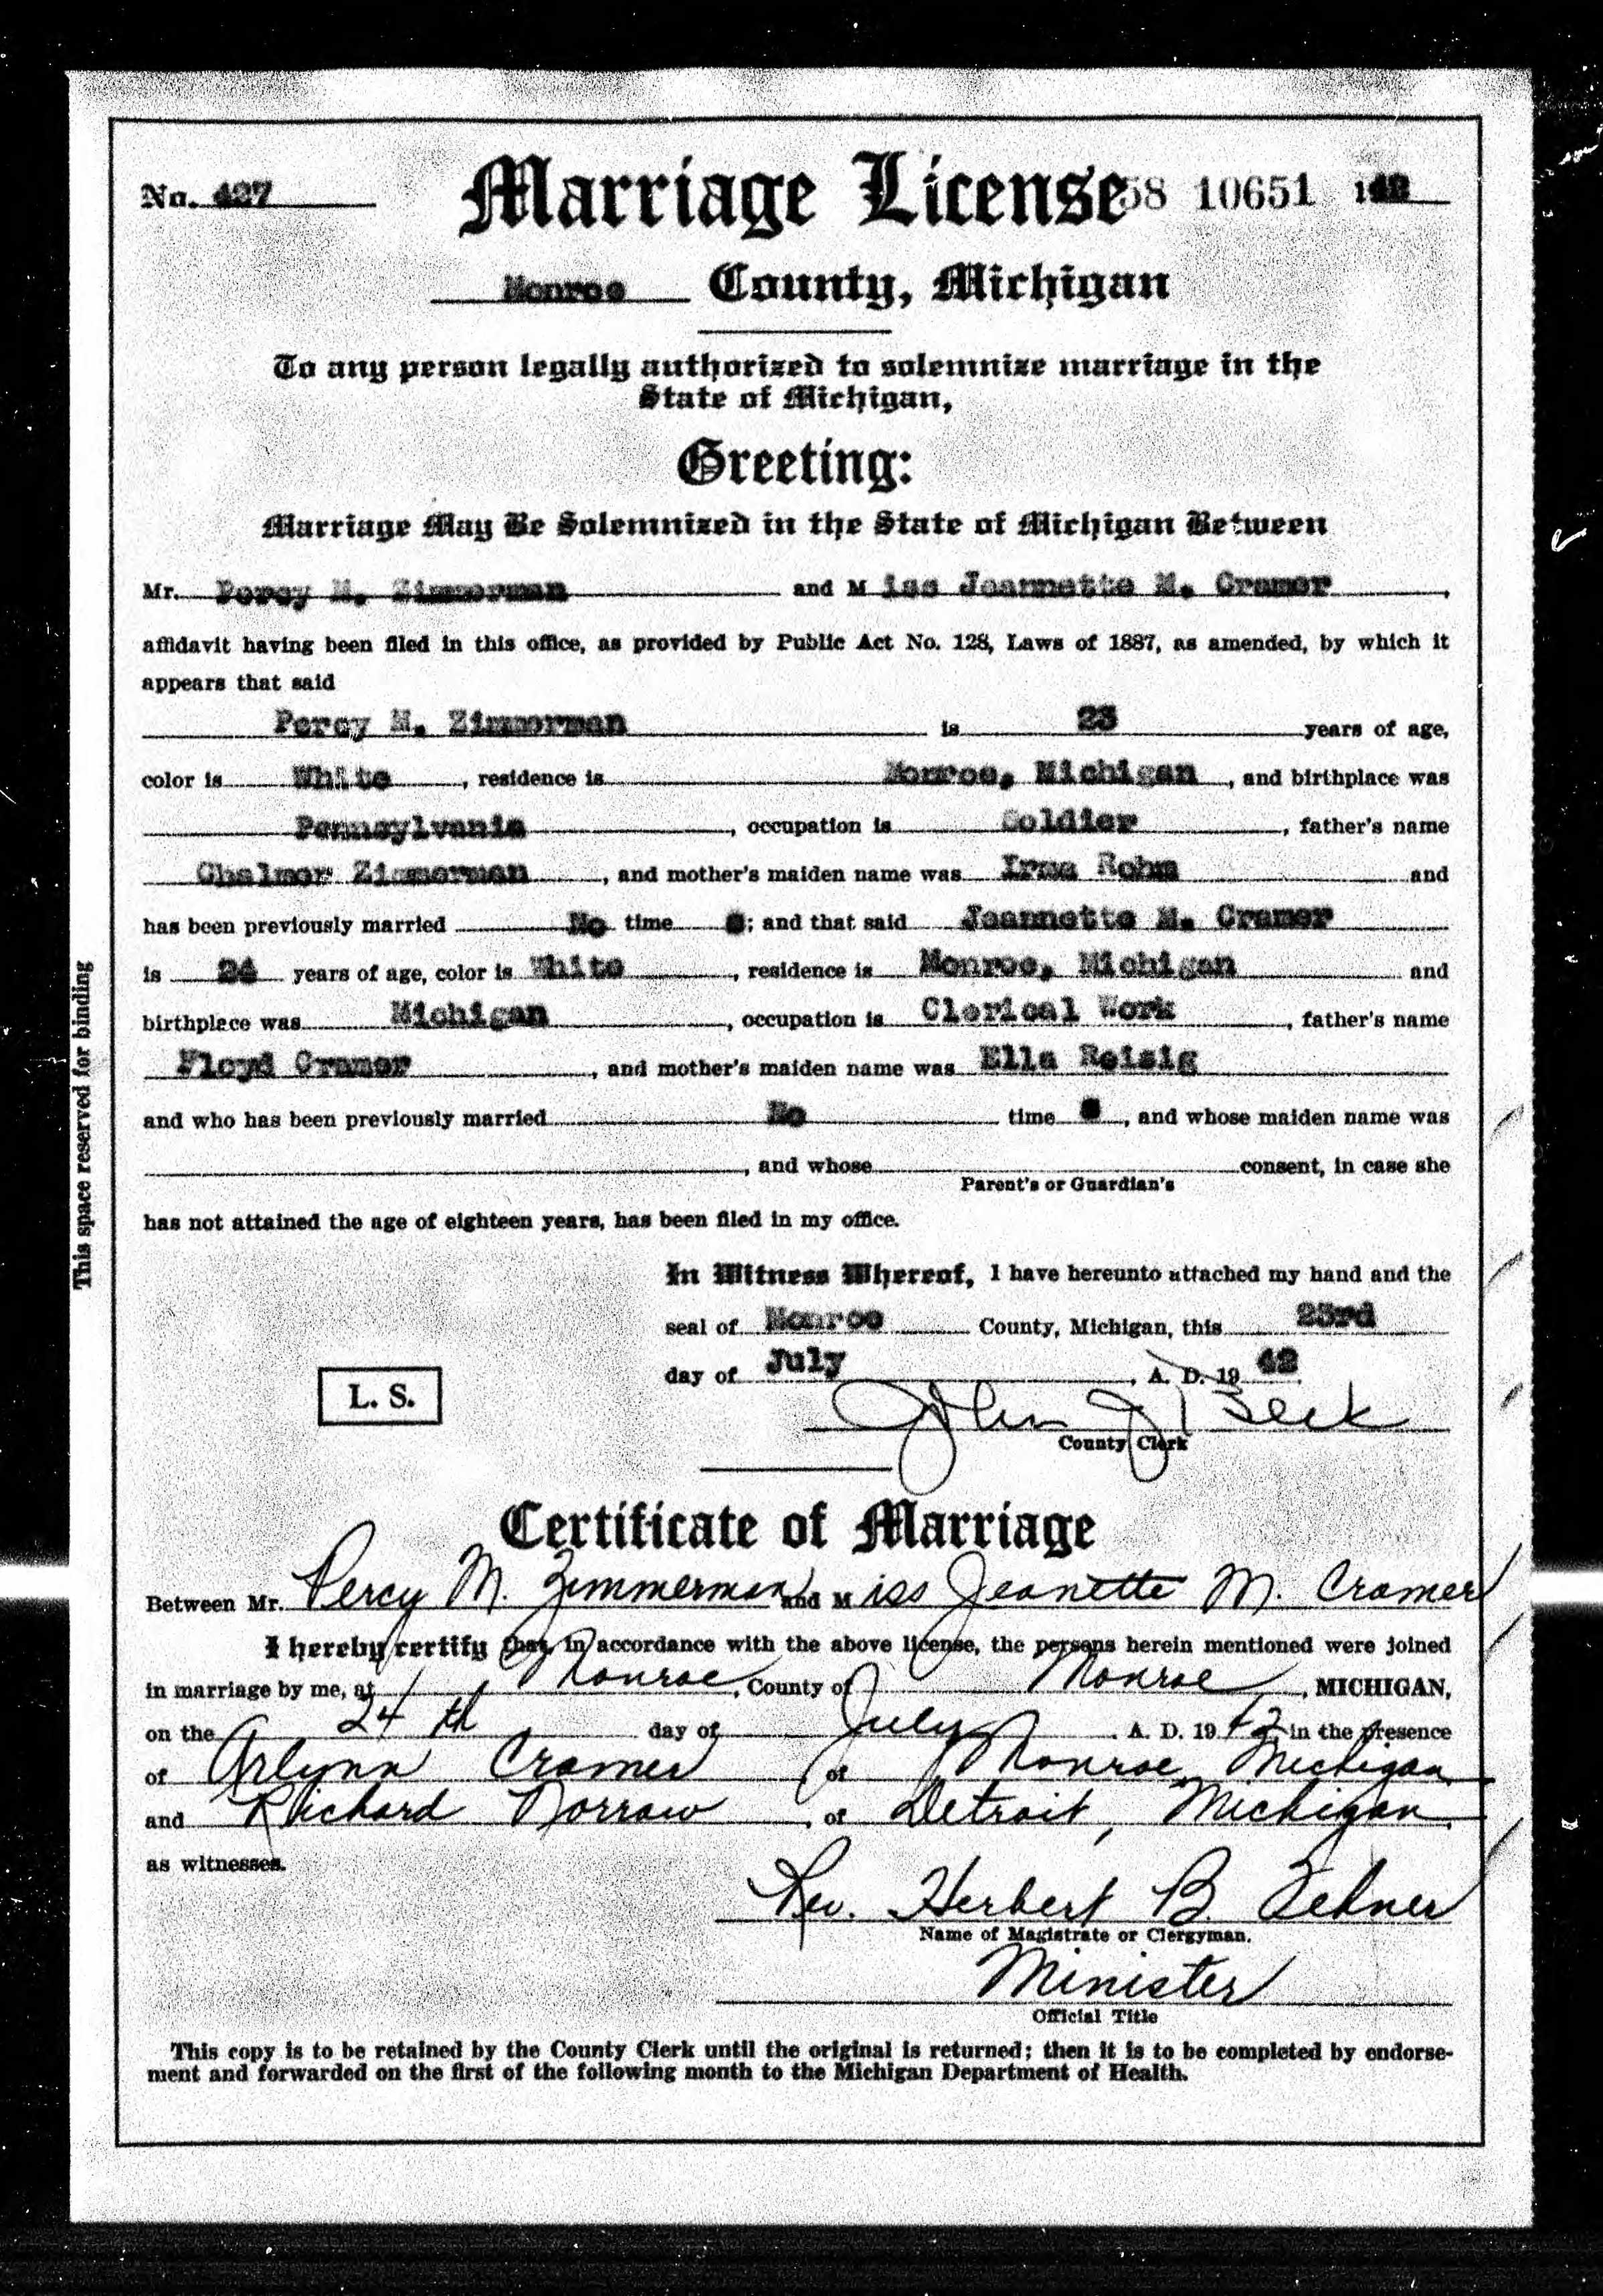 No. 427 Marriage License 58 10651 1942
Monroe County, Michigan
To any person legally authorized to solemnize marriage in the
State of Michigan,
Greeting:
Marriage May Be Solemnized in the State of Michigan Between
Mr. Percy M. Zimmerman and Miss Jeannette M. Cramer,
affidavit having been filed in this office, as provided by Public Act No. 128, Laws of 1887, as amended, by which it
appears that said
Percy M. Zimmerman is 23 years of age,
color is White, residence is Monroe, Michigan, and birthplace was
Pennsylvania, occupation is Soldier, father's name
Chalmer Zimmerman, and mother's maiden name was Irma Rohm and
has been previously married No time; and that said Jeannette M. Cramer
is 24 years of age, color is White, residence is Monroe, Michigan and
birthplace was Michigan, occupation is Clerical Work, father's name
Floyd Cramer, and mother's maiden name was Ella Reisig
and who has been previously married No time, and whose maiden name was
, and whose consent, in case she
Parent's or Guardian's
has not attained the age of eighteen years, has been filed in my office.
In Witness Whereof, I have hereunto attached my hand and the
seal of Monroe County, Michigan, this 23rd
day of July, A. D. 19 42.
L. S.
John J Beck
County Clerk
Certificate of Marriage
Between Mr. Percy M. Zimmerman and Miss Jeanette M. Cramer
I hereby certify that, in accordance with the above license, the persons herein mentioned were joined
in marriage by me, at Monroe, County of Monroe, MICHIGAN,
on the 24th day of July A. D. 19 42 in the presence
of Arlynn Cramer of Monroe, Michigan
and Richard Dorrow, of Detroit, Michigan,
as witnesses.
Rev. Herbert B. Zehner
Name of Magistrate or Clergyman.
Minister
Official Title
This copy is to be retained by the County Clerk until the original is returned; then it is to be completed by endorse-
ment and forwarded on the first of the following month to the Michigan Department of Health.
This space reserved for binding